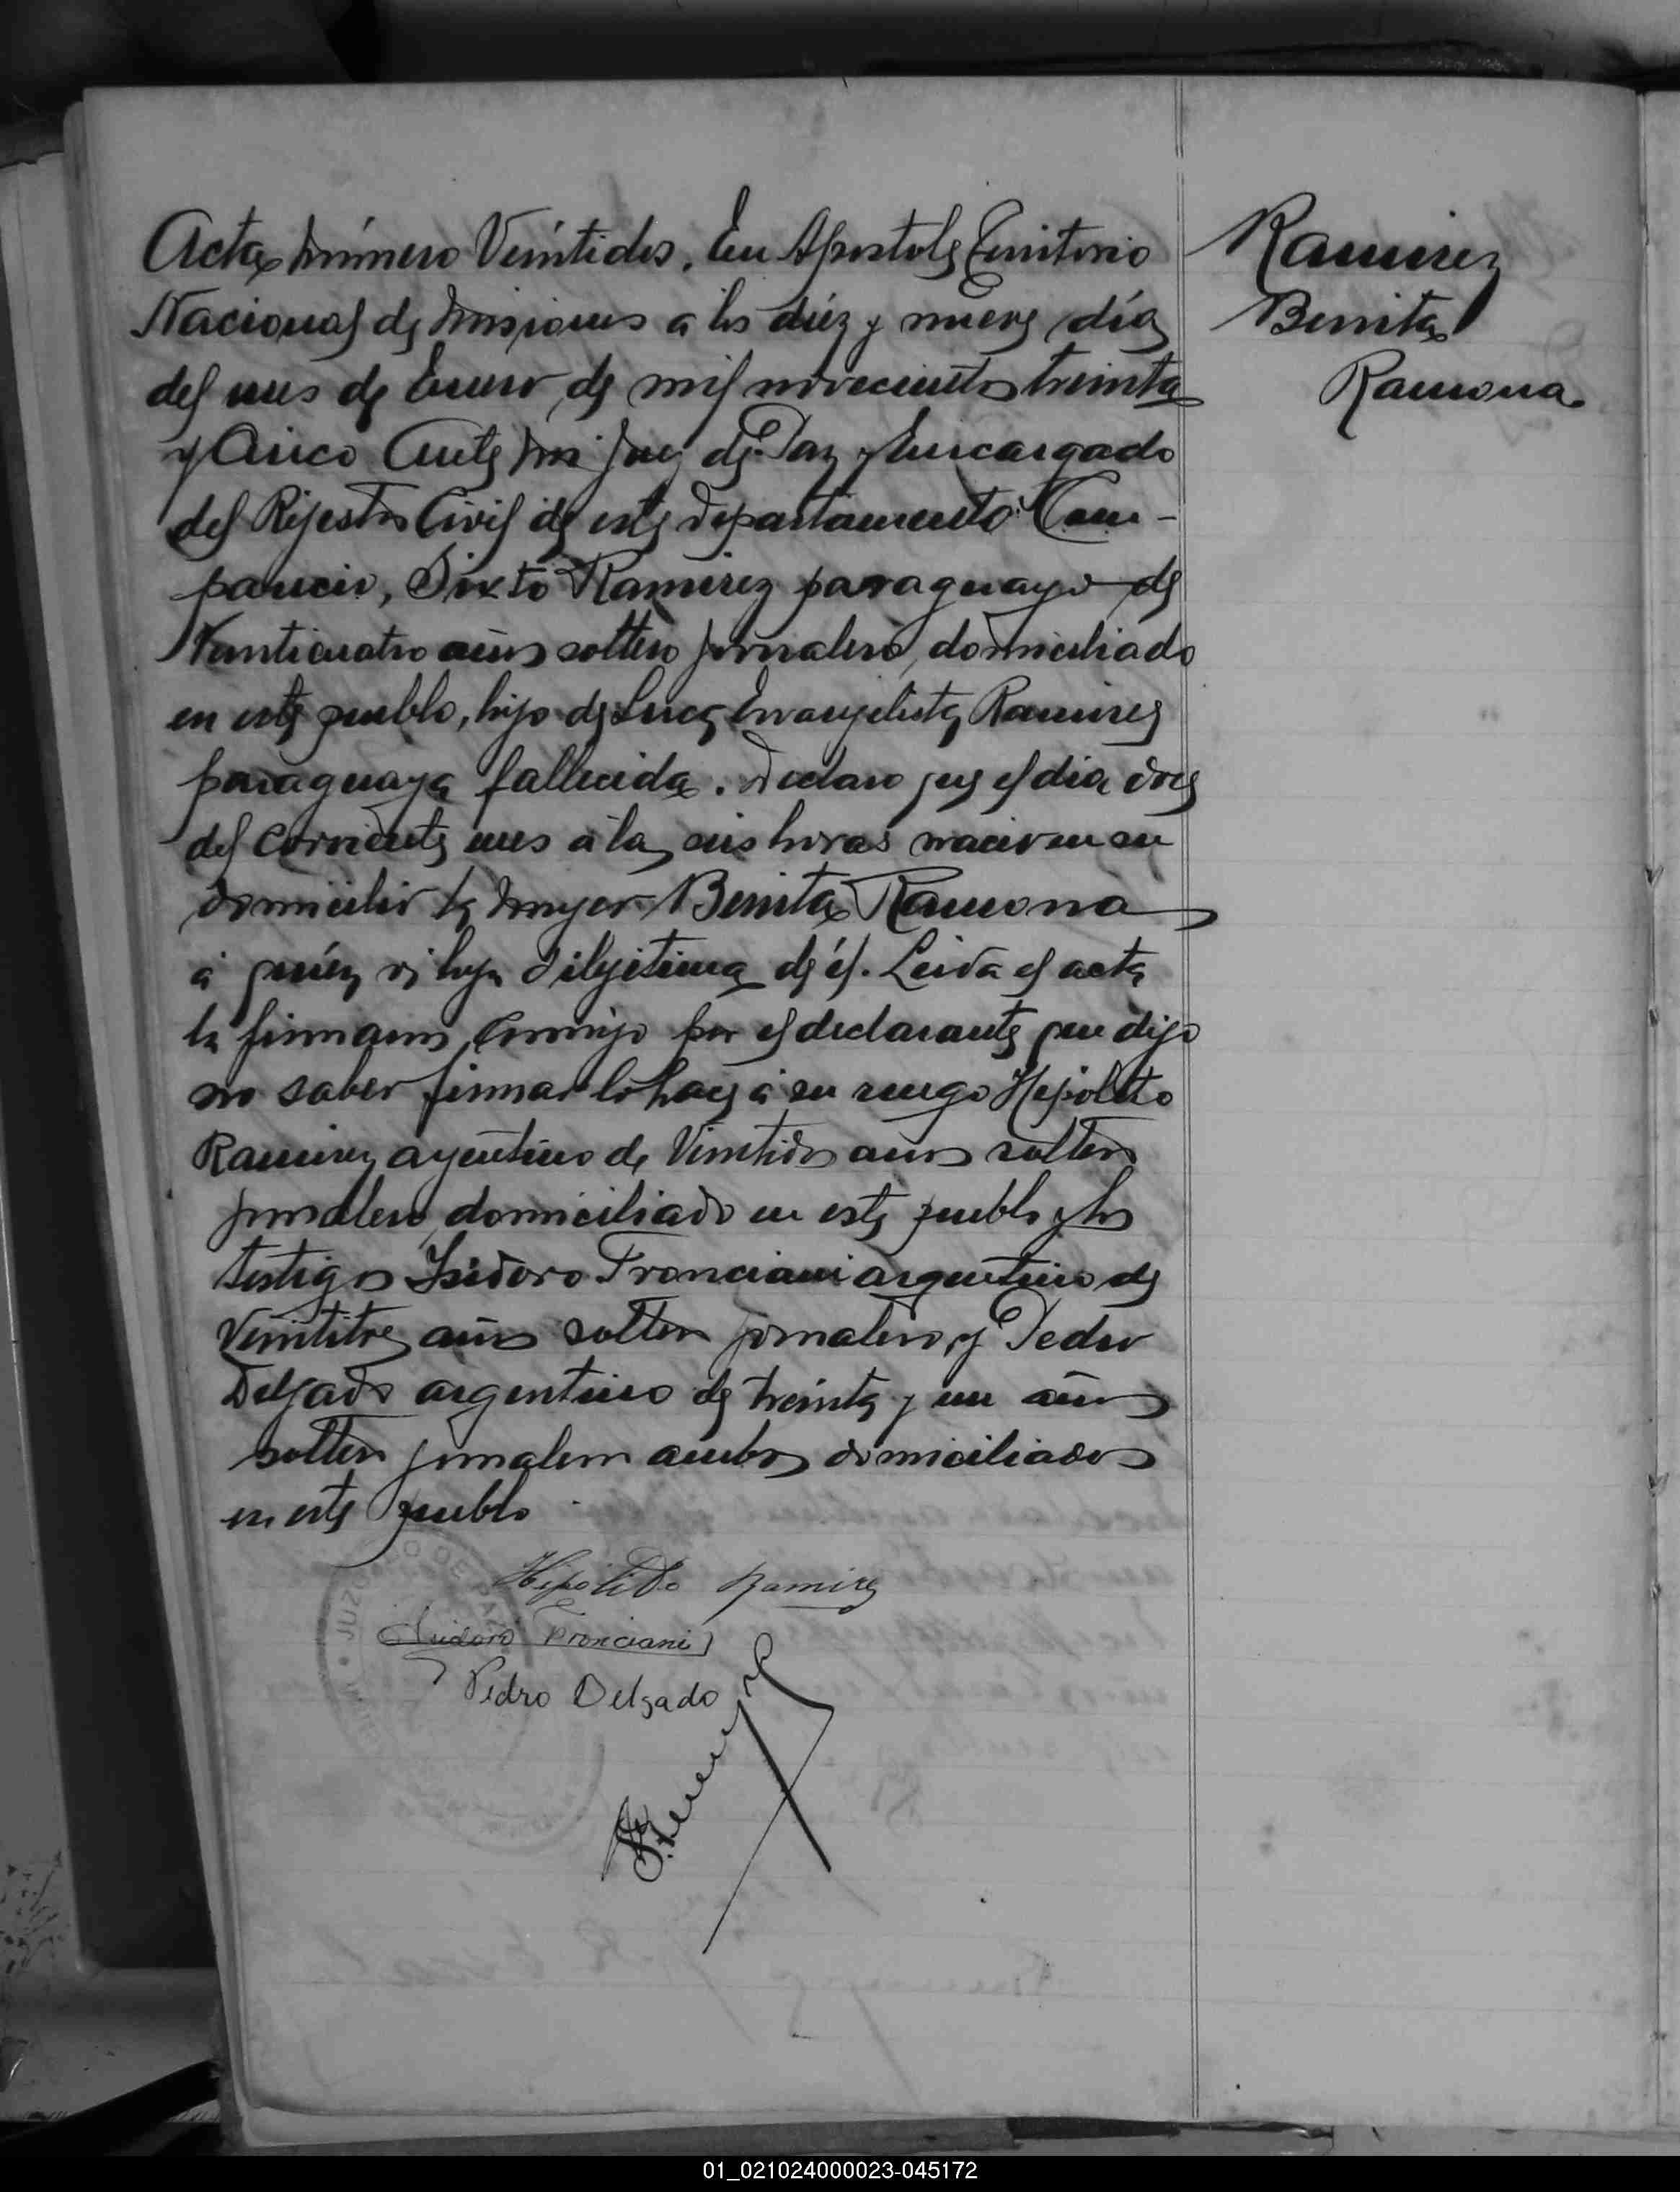 Acta número Veintidos. En Apostoles Territorio
Nacional de Misiones a los diéz y nueve días
del mes de Enero de mil novecientos treinta
y Cinco Ante mi Juez de Paz y Encargado
del Rejestro Civil de este departamento: Com-
parecio, Sixto Ramirez paraguayo de
Venticuatro años soltero jornalero, domiciliado
en este pueblo, hijo de Luca Evangelista Ramirez
paraguaya fallecida. Declaro que el día doce
del corriente mes a las seis horas nacio en su
domicilio la mujer Benita Ramona
á quién vi hija ilejitima de él. Leida el acta
la firmaron conmigo por el declarante que dijo
no saber firmar lo hace á su ruego Hipolito
Ramirez argentino de Vintidos años soltero
jornalero, domiciliado en este pueblo y los
testigos Isidoro Fronciani argentino de
Veintitres años soltero jornalero, y Pedro
Delgado argentino de treinta y un años
soltero jornalero ambos domiciliados
en este pueblo
Hipolito Ramirez
Isidoro Fronciani
Pedro Delgado
JUZGADO DE PAZ
Ramirez
Benita
Ramona
01_021024000023-045172